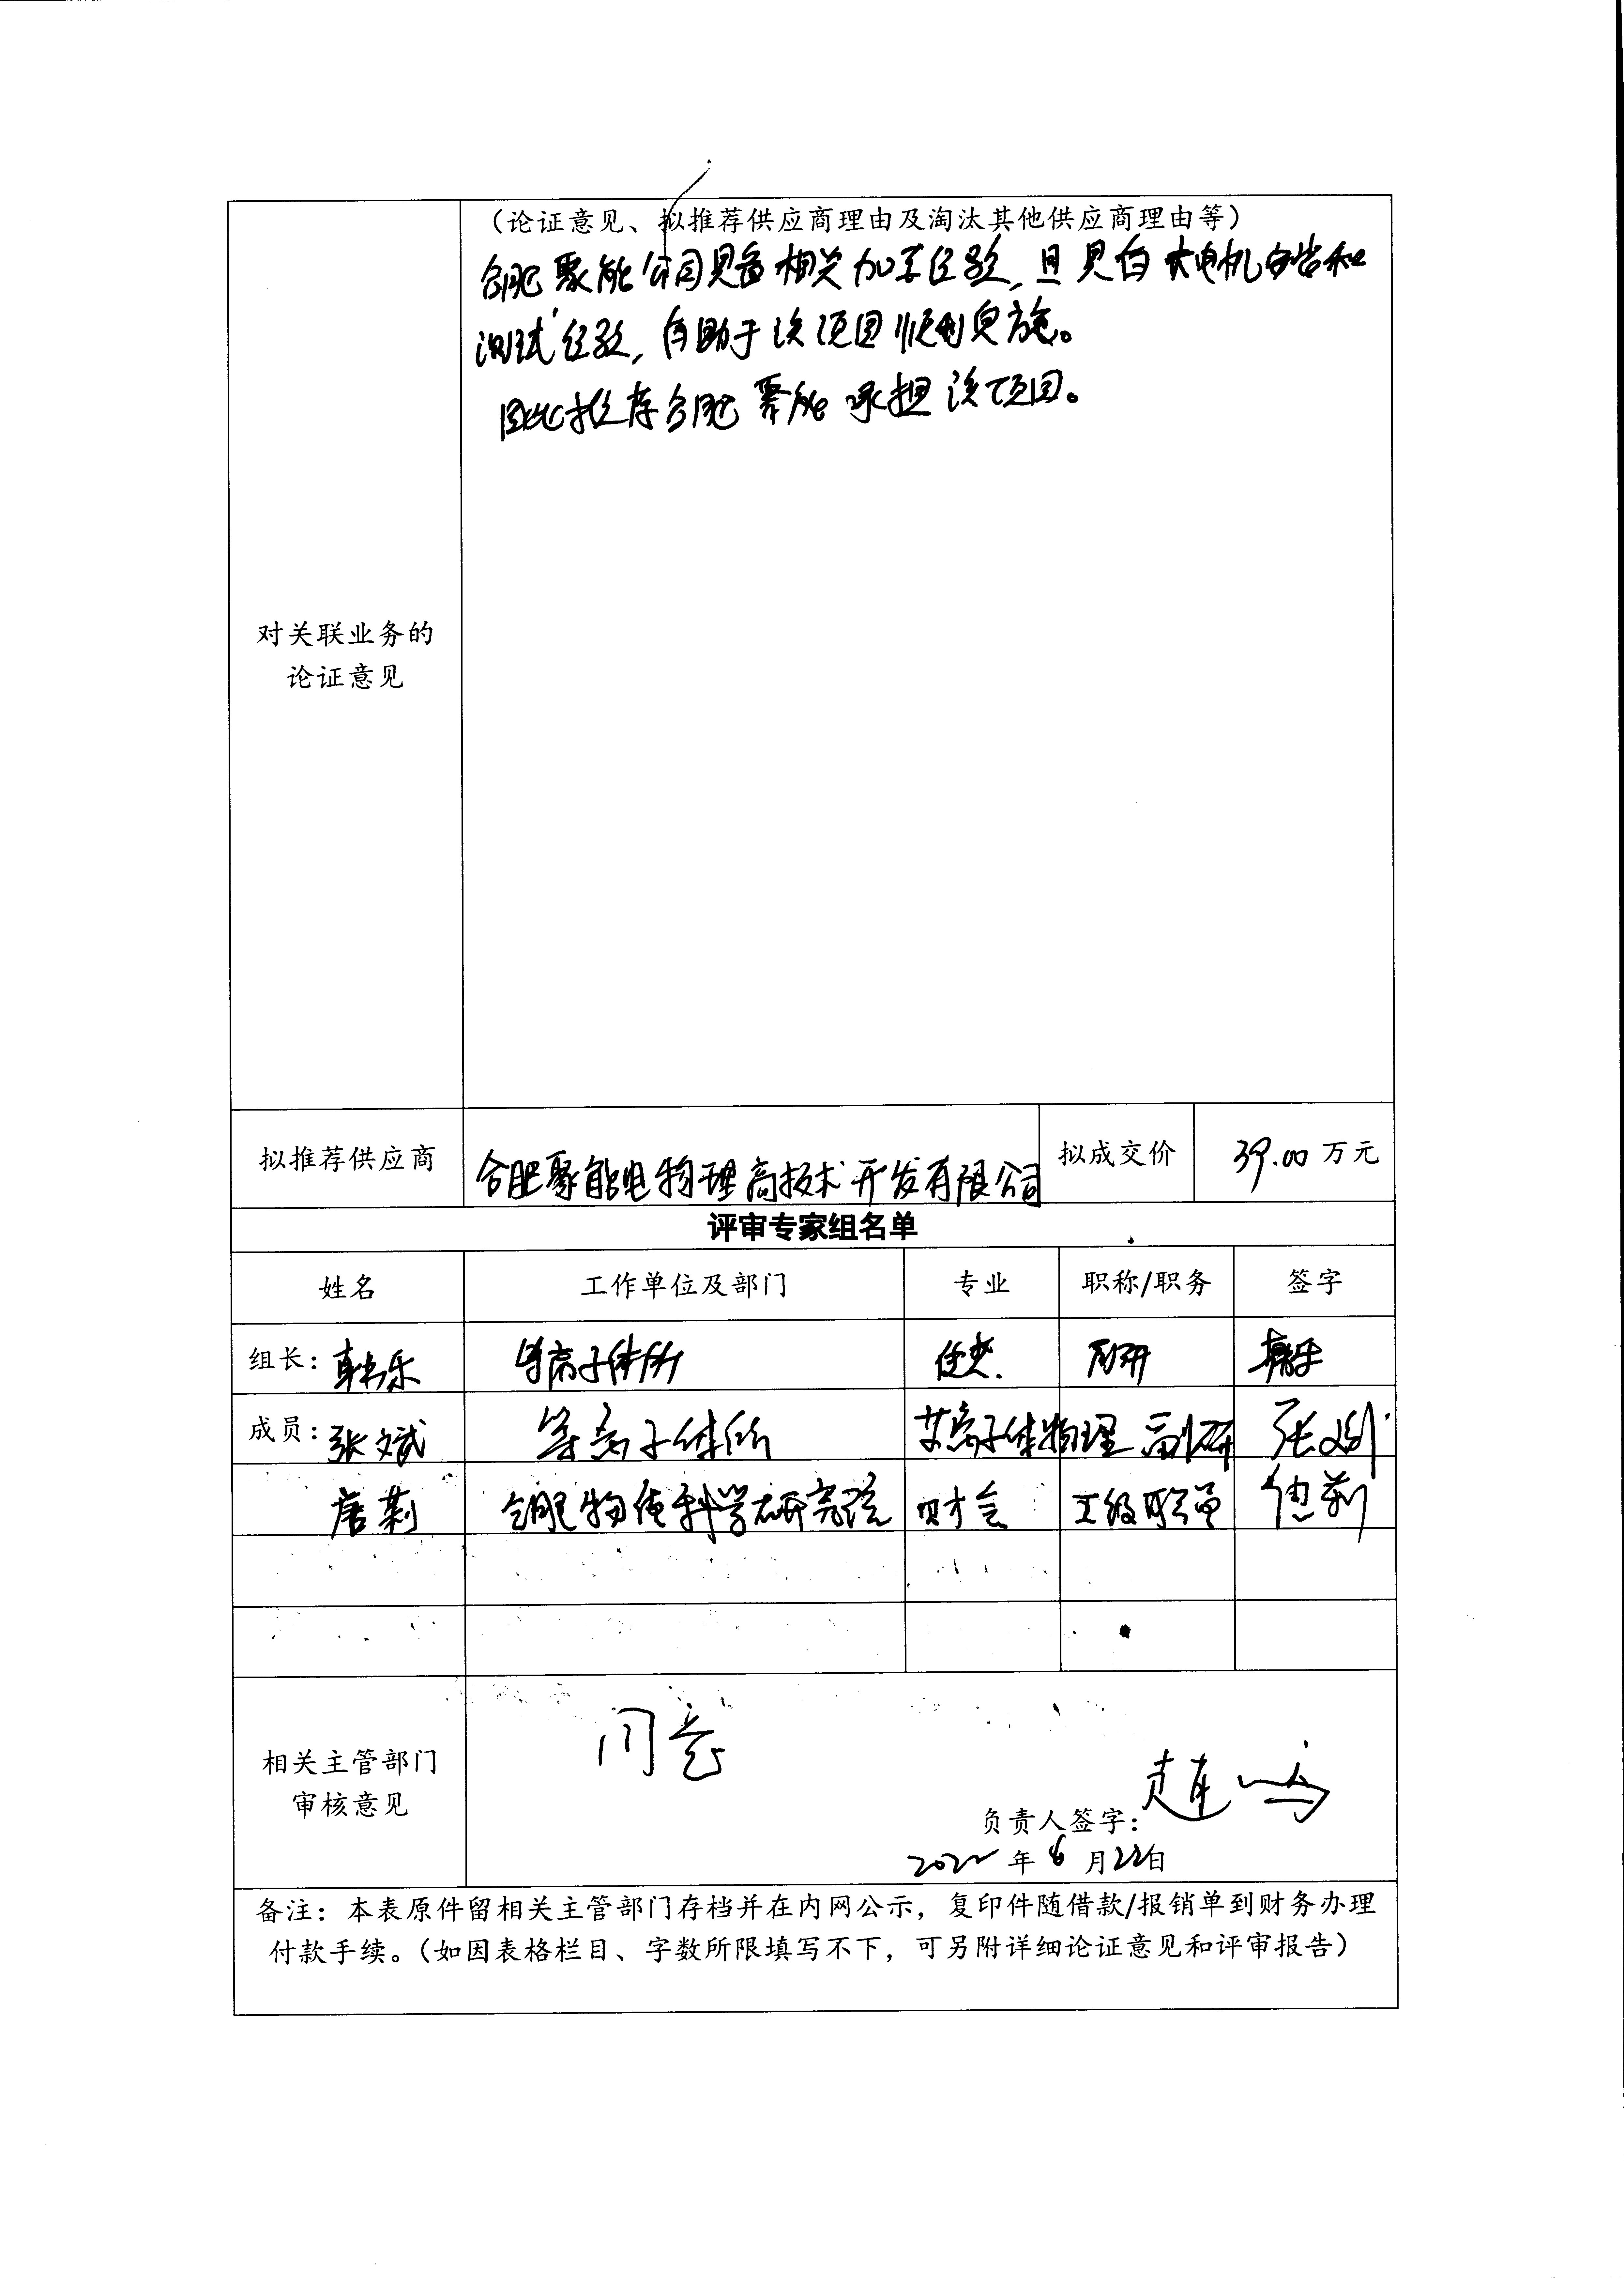 （论证意见、拟推荐供应商理由及淘汰其他供应商理由等）
合肥聚能公司具备相关加工经验，且具有大电机安装和
测试经验，有助于该项目顺利实施。
因此推荐合肥聚能承担该项目。
对关联业务的
论证意见
拟推荐供应商 合肥聚能电物理高技术开发有限公司 拟成交价 39.00 万元
评审专家组名单
姓名 工作单位及部门 专业 职称/职务 签字
组长：韩乐 等离子体所 副研 韩乐
成员：张文斌 等离子体所 等离子体物理 副研 张文斌
唐莉 合肥物质科学研究院 财会 五级职员 唐莉
同意
相关主管部门
审核意见
负责人签字：
2022年6月22日
备注：本表原件留相关主管部门存档并在内网公示，复印件随借款/报销单到财务办理
付款手续。（如因表格栏目、字数所限填写不下，可另附详细论证意见和评审报告）